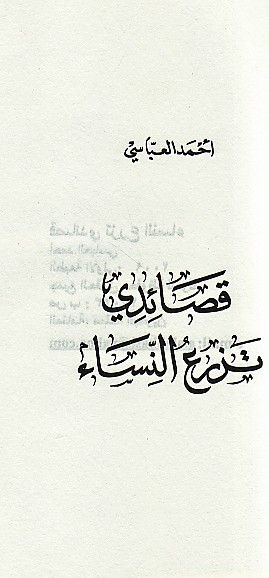 أحمد العبّاسي
قصائدي
تزرع النّساء